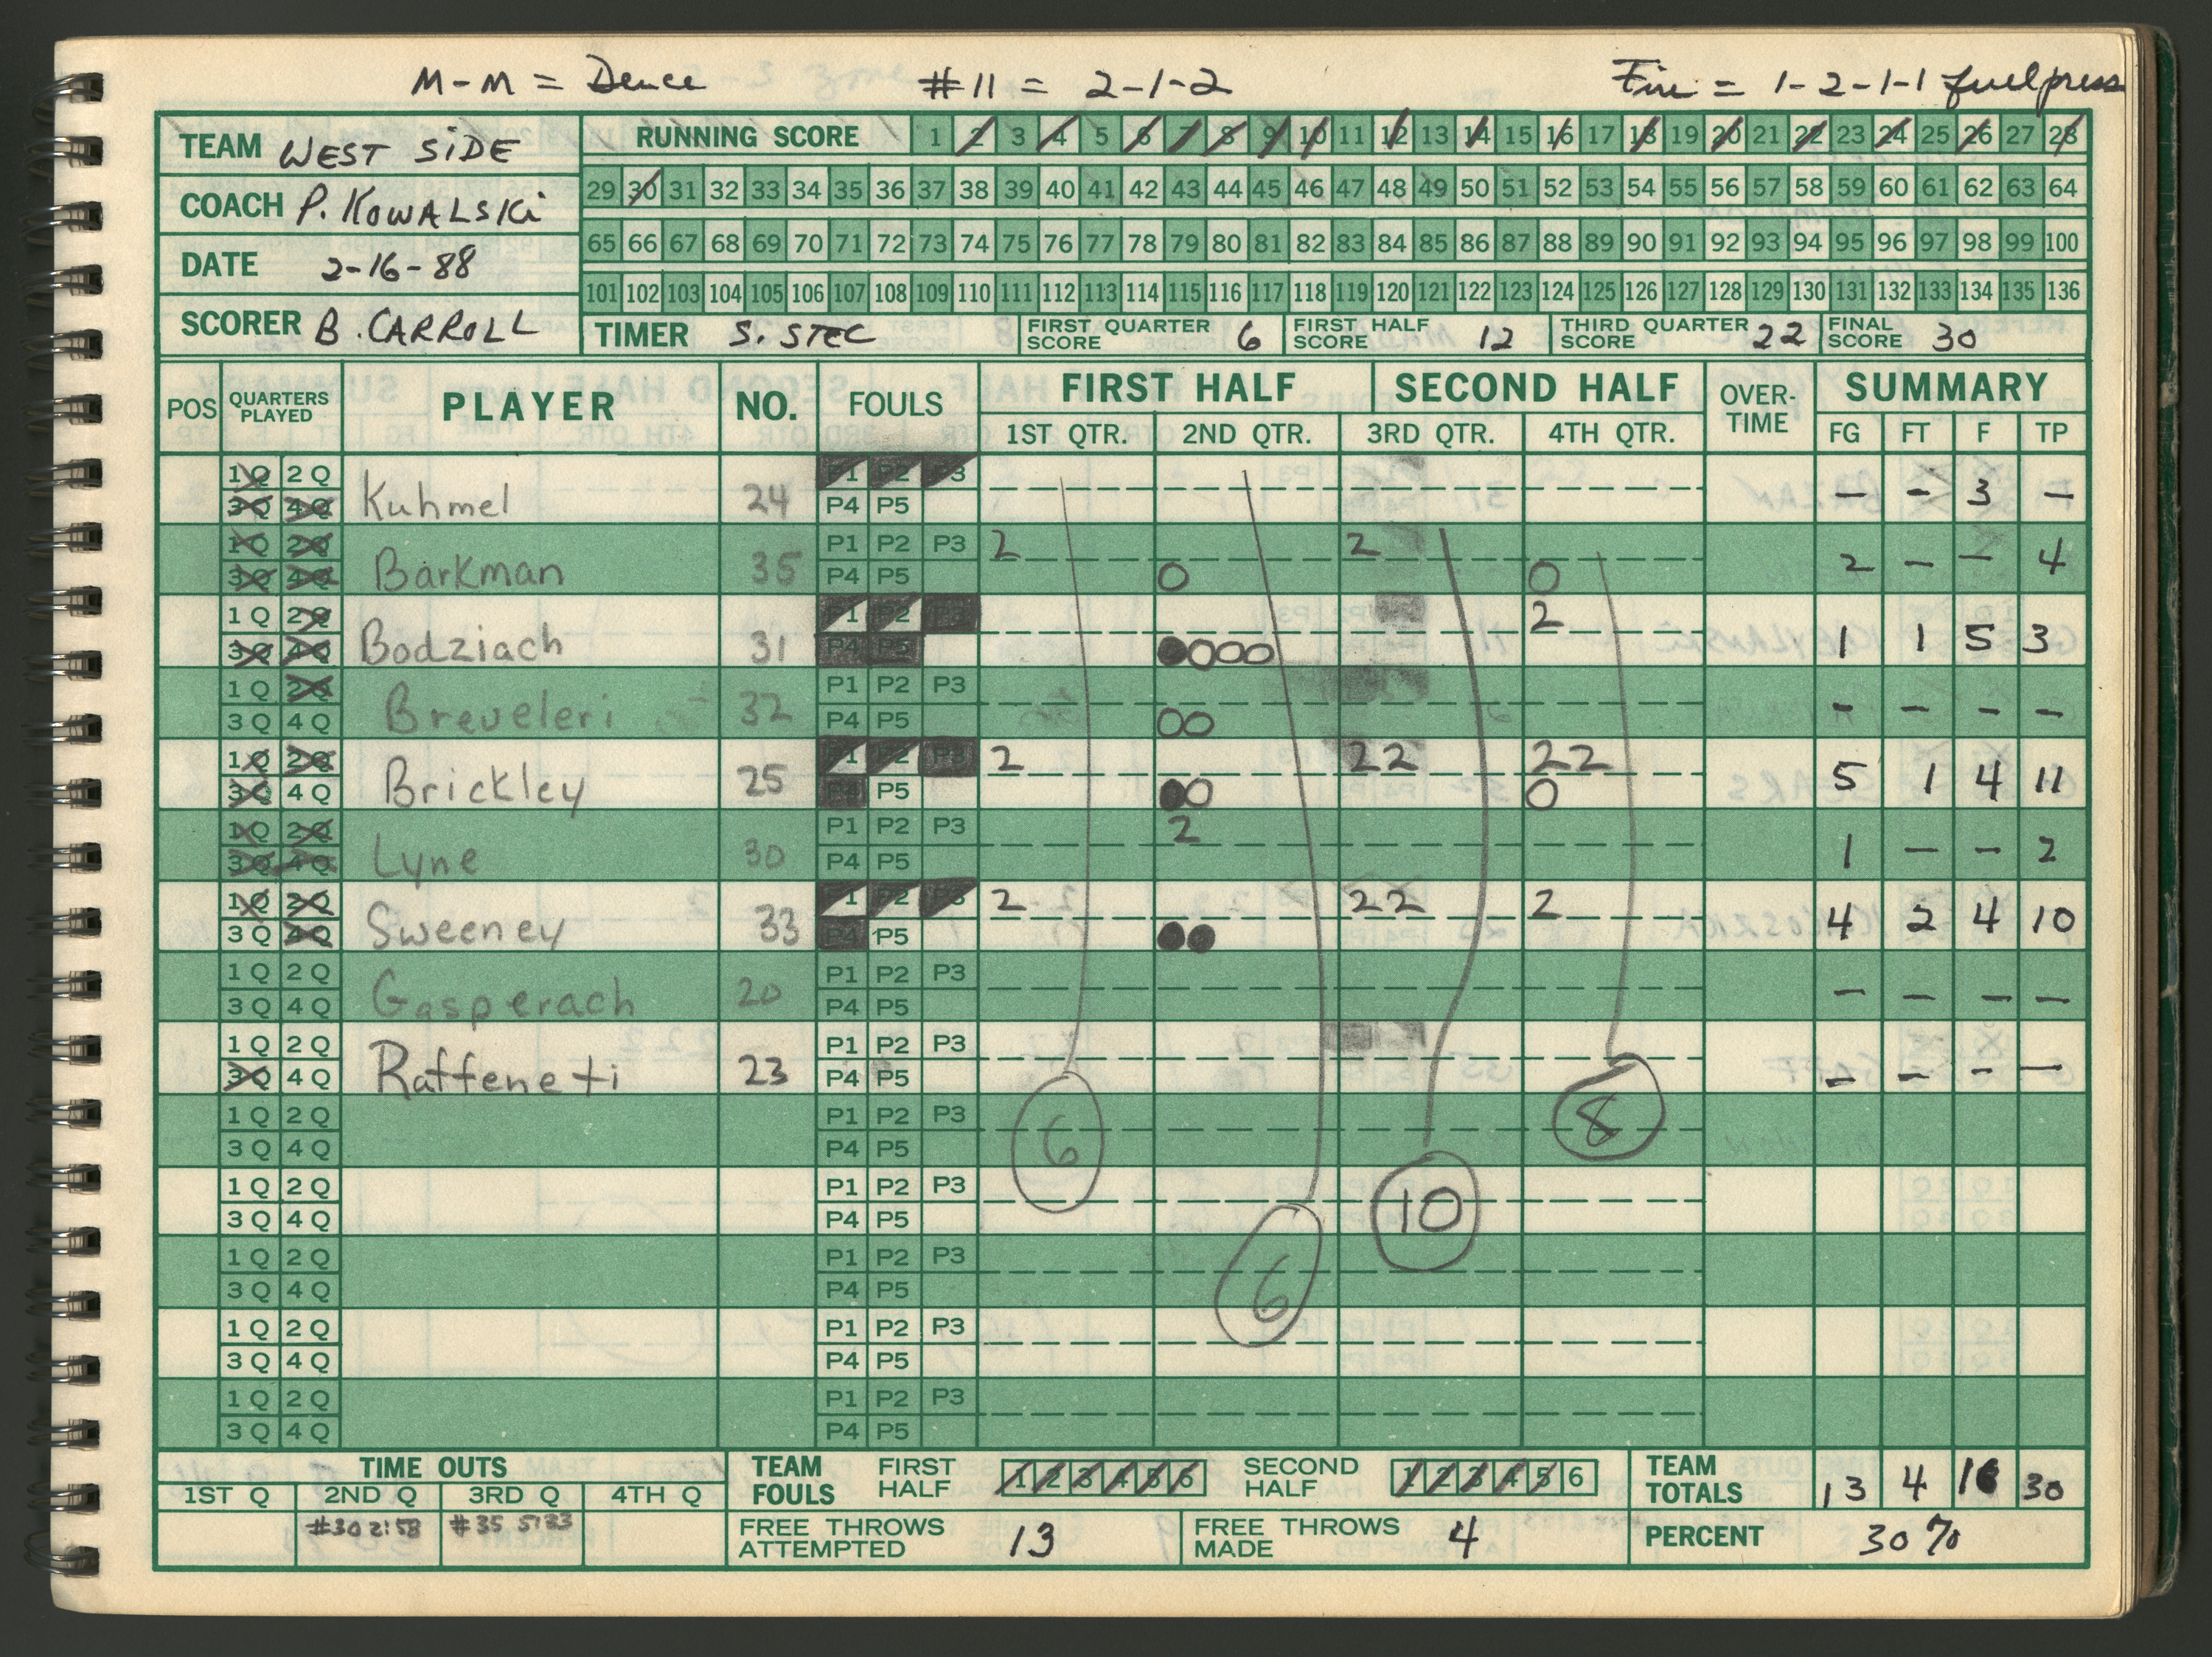 M-M = Deuce #11 = 2-1-2 Fire = 1-2-1-1 full press
TEAM WEST SIDE
RUNNING SCORE 1 2 3 4 5 6 7 8 9 10 11 12 13 14 15 16 17 18 19 20 21 22 23 24 25 26 27 28
29 30 31 32 33 34 35 36 37 38 39 40 41 42 43 44 45 46 47 48 49 50 51 52 53 54 55 56 57 58 59 60 61 62 63 64
COACH P. KOWALSKI
65 66 67 68 69 70 71 72 73 74 75 76 77 78 79 80 81 82 83 84 85 86 87 88 89 90 91 92 93 94 95 96 97 98 99 100
DATE 2-16-88
101 102 103 104 105 106 107 108 109 110 111 112 113 114 115 116 117 118 119 120 121 122 123 124 125 126 127 128 129 130 131 132 133 134 135 136
SCORER B. CARROLL
TIMER S. STEC FIRST QUARTER SCORE 6 FIRST HALF SCORE 12 THIRD QUARTER SCORE 22 FINAL SCORE 30
POS QUARTERS PLAYED PLAYER NO. FOULS FIRST HALF SECOND HALF OVER-TIME SUMMARY
1ST QTR. 2ND QTR. 3RD QTR. 4TH QTR. FG FT F TP
1Q 2Q P1 P2 P3
3Q 4Q Kuhmel 24 P4 P5 - - 3 -
1Q 2Q P1 P2 P3 2 2
3Q 4Q Barkman 35 P4 P5 O O 2 - - 4
1Q 2Q P1 P2 P3 2
3Q 4Q Bodziach 31 P4 P5 ●OOO 1 1 5 3
1Q 2Q P1 P2 P3
3Q 4Q Breveleri 32 P4 P5 OO - - - -
1Q 2Q P1 P2 P3 2 22 22
3Q 4Q Brickley 25 P4 P5 ●O O 5 1 4 11
1Q 2Q P1 P2 P3 2
3Q 4Q Lyne 30 P4 P5 1 - - 2
1Q 2Q P1 P2 P3 2 22 2
3Q 4Q Sweeney 33 P4 P5 ●● 4 2 4 10
1Q 2Q P1 P2 P3
3Q 4Q Gasperach 20 P4 P5 - - - -
1Q 2Q P1 P2 P3
3Q 4Q Raffeneti 23 P4 P5 - - - -
1Q 2Q P1 P2 P3 8
3Q 4Q P4 P5 6
1Q 2Q P1 P2 P3
3Q 4Q P4 P5 10
1Q 2Q P1 P2 P3
3Q 4Q P4 P5 6
1Q 2Q P1 P2 P3
3Q 4Q P4 P5
1Q 2Q P1 P2 P3
3Q 4Q P4 P5
TIME OUTS TEAM FOULS FIRST HALF 1 2 3 4 5 6 SECOND HALF 1 2 3 4 5 6 TEAM TOTALS 13 4 16 30
1ST Q 2ND Q 3RD Q 4TH Q
#30 2:58 #35 5:33 FREE THROWS ATTEMPTED 13 FREE THROWS MADE 4 PERCENT 30%